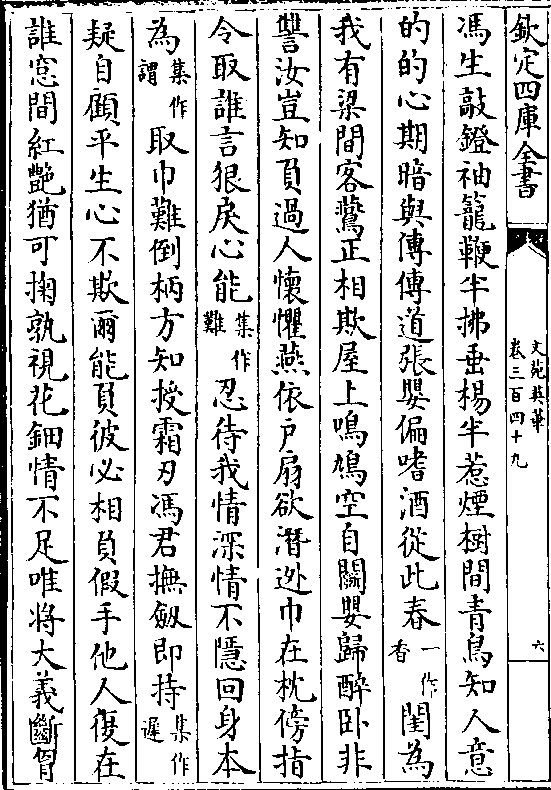 欽定四庫全書
文苑英華
卷三百四十九
六
馮生敲鐙袖籠鞭半拂垂楊半惹煙樹間青鳥知人意
的的心期暗與傳傳道張嬰偏嗜酒從此春一作香閨為
我有梁間客鷰正相欺屋上鳴鳩空自鬬嬰歸醉卧非
讐汝豈知負過人懷懼燕依户扇欲潛逃巾在枕傍指
令取誰言狠戾心能集作難忍待我情深情不隱回身本
為集作謂取巾難倒柄方知授霜刃馮君撫劔即持集作遲
疑自顧平生心不欺爾能負彼必相負假手他人復在
誰窓間紅艷猶可掬孰視花鈿情不足唯將大義斷胷